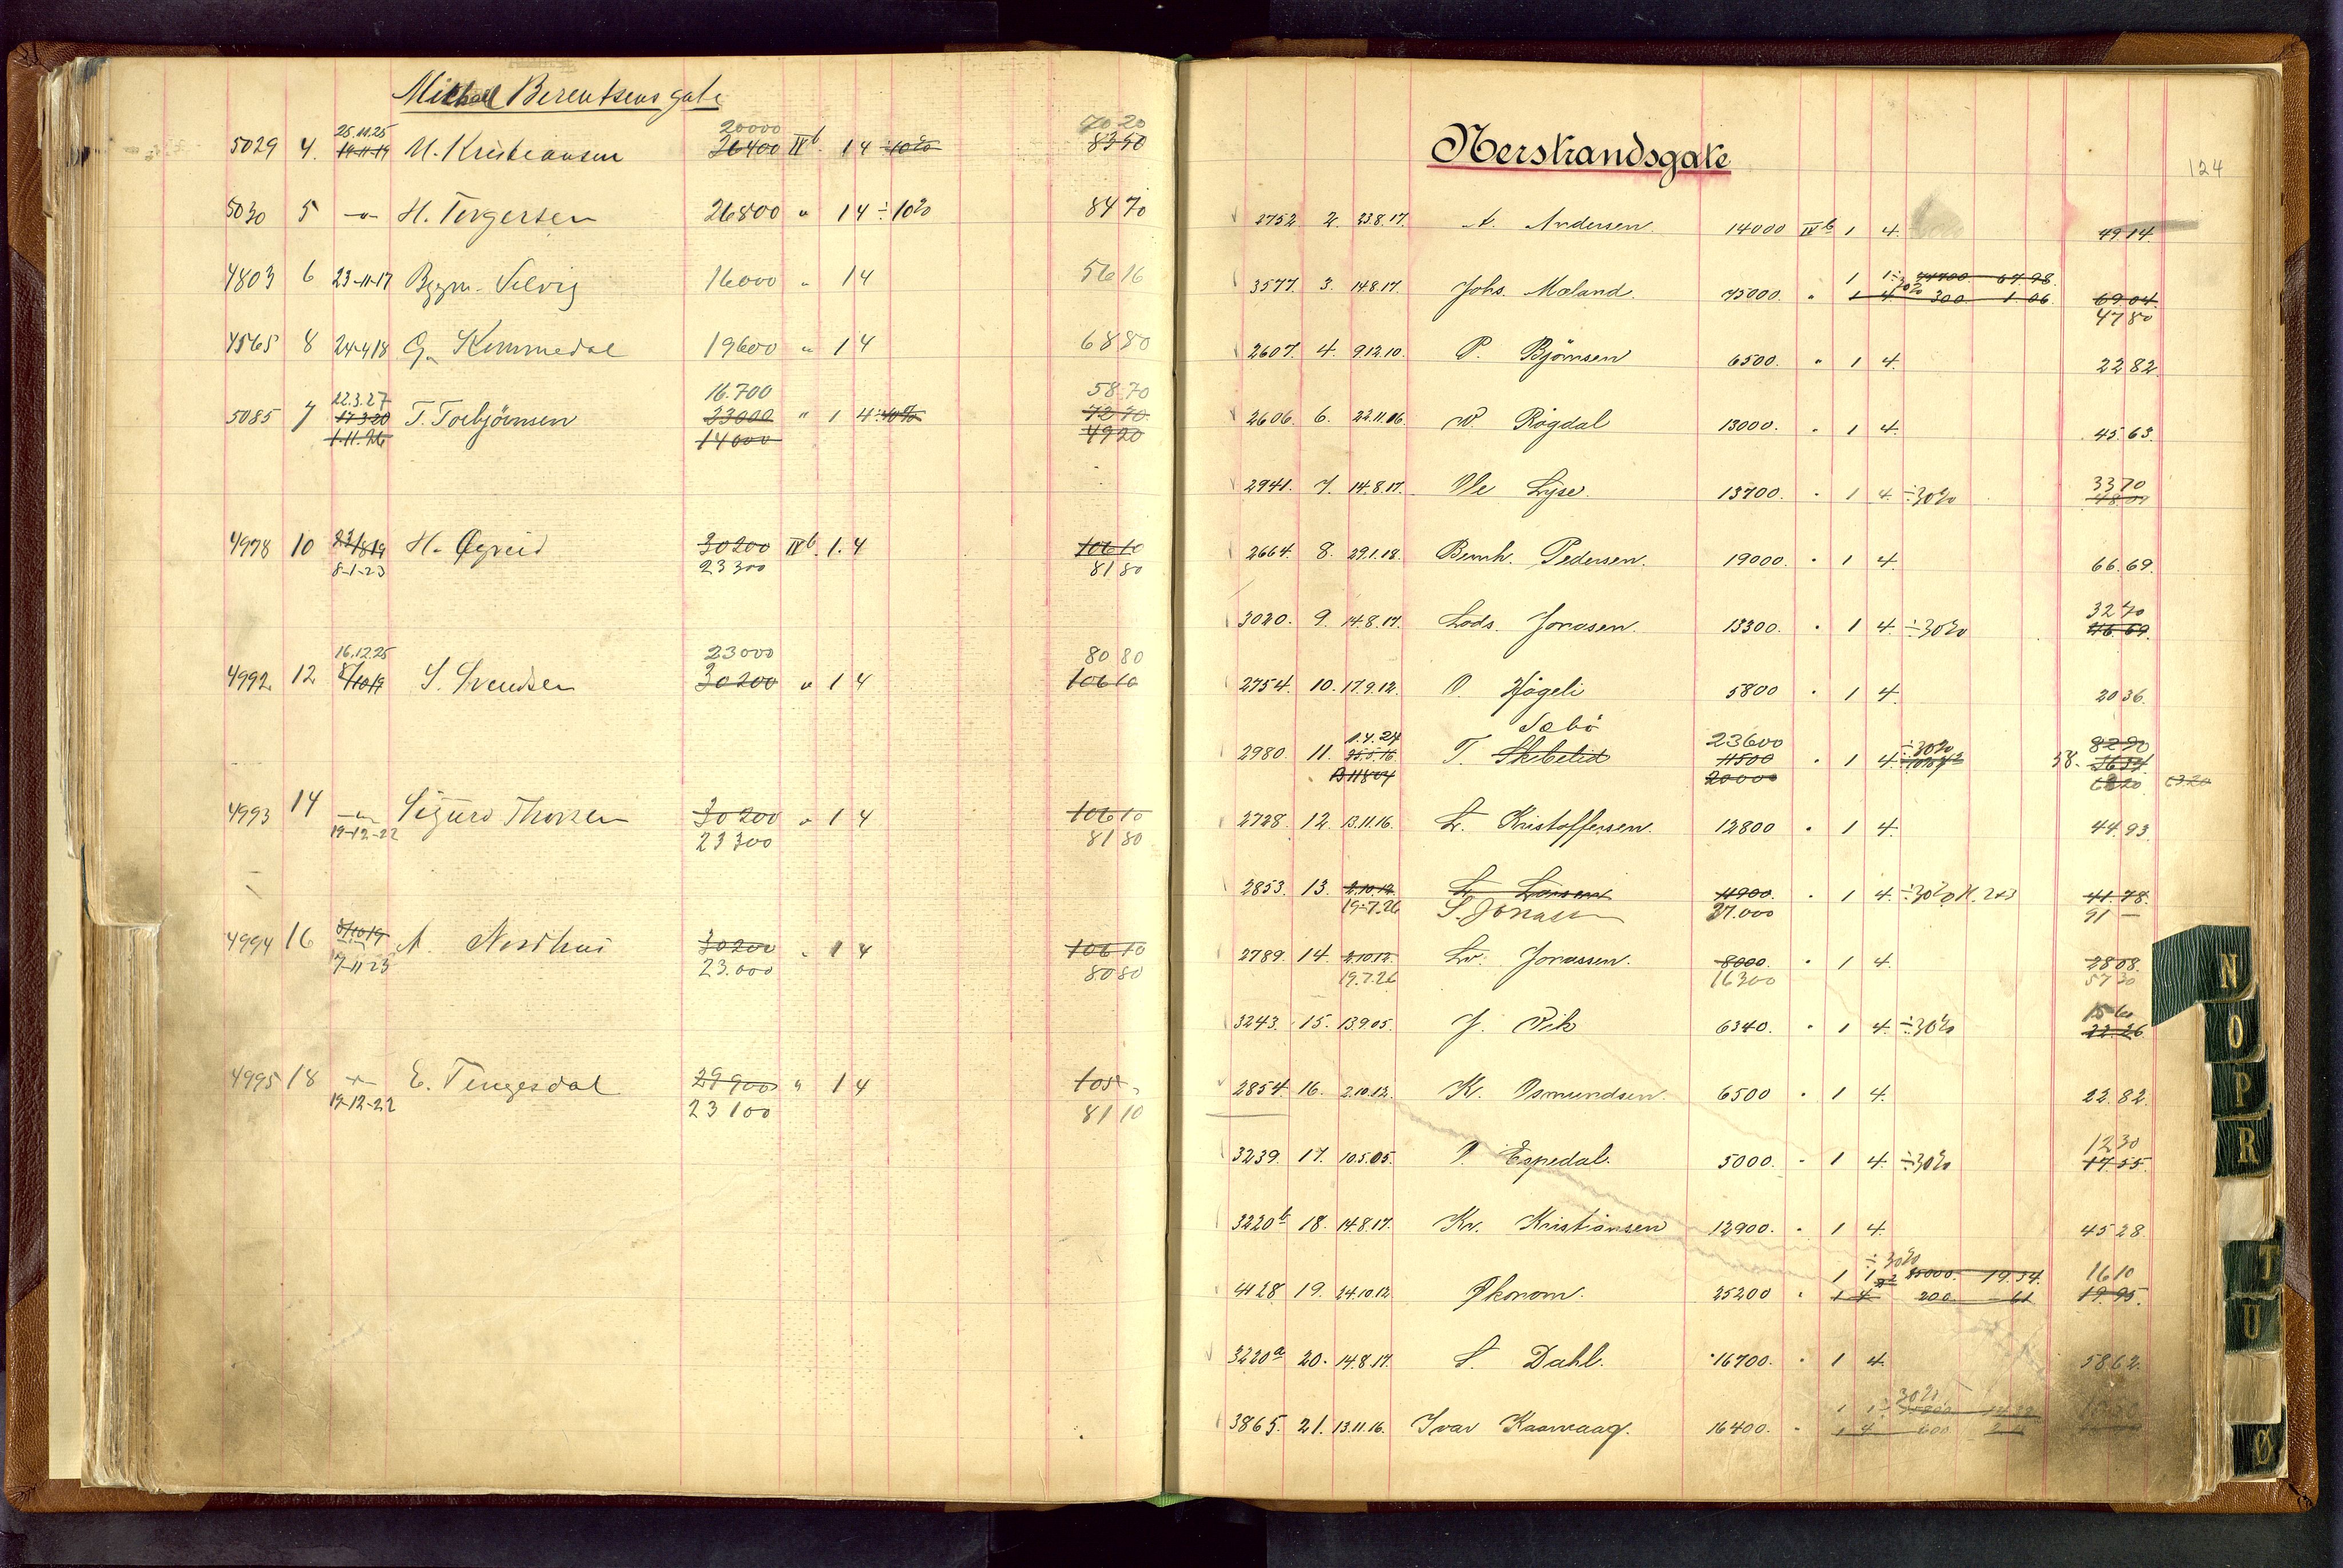 Michael Berentsens gate
20000 70 20
25.11.25
5029 4. 14-11-19 M. Kristiansen 26400 IVb. 1 4 ÷10% 83 50
5030 5 -"- H. Torgersen 26800 " 1 4 ÷10% 84 70
4803 6 23-11-17 Bggm. Selvig 16000 " 1 4 56 16
4565 8 24-4-18 G. Kommedal 19600 " 1 4 68 80
22.3.27 16.700 58 70
5085 7 17.3.20 T. Torbjörnsen 23000 " 1 4 ÷10% 72 70
1.11.26 14000 49 20
4978 10 23/8 19 H. Øgreid 30200 IVb. 1. 4 106 10
8-1-23 23300 81 80
16.12.25 23000 80 80
4992 12 8/10 19 S. Svendsen 30200 " 1 4 106 10
4993 14 -"- Sigurd Thorsen 30200 " 1 4 106 10
19-12-22 23300 81 80
4994 16 8/10 19 A. Nordhus 30200 " 1 4 106 10
7-11-23 23.000 80 80
4995 18 -"- E. Tengesdal 29900 " 1 4 105 -
19-12-22 23100 81 10
Nerstrandsgate
124
2752 2. 23.8.17. A. Andersen. 14000 IVb 1 4. 49 14.
1 1 ÷30% 67.98
3577. 3. 14.8.17. Johs. Maland. 75000. " 1 4. 300. 1.06 69 04
47 80
2607. 4. 9.12.10. P. Björnsen 6500. " 1 4. 22 82.
2606. 6. 22.11.06. W. Rögdal 13000. " 1 4. 45 63.
33 70
2941. 7. 14.8.17. Ole Lyse. 13700. " 1 4. ÷30% 48 09
2664. 8. 29.1.18. Bernh. Pedersen. 19000. " 1 4. 66.69.
32 70
3020. 9. 14.8.17. Lods. Jonasen. 13300. " 1 4. ÷30% 46 69.
2754. 10. 17.9.12. O. Högeli 5800 " 1 4. 20 36.
1.4.24 Sæbö 23600 ÷30% 82 70
2980. 11. 25.5.16. T. Skibelid 11500 " 1 4. 58.
20000 63.20
2728. 12. 13.11.16. L. Kristoffersen. 12800 " 1 4. 44.93.
2853. 13. 2.10.12. L. Larsen 11900. " 1 4. ÷30% 41.78.
19-7.26 S. Jonassen 27.000 91 -
2789. 14. 2.10.12. Lv. Jonassen. 8000. " 1 4. 28 08.
19.7.26 16300 57 30
15 60
3243. 15. 13.9.05. J. Vik 6340. " 1 4. ÷30% 22 26.
2854. 16. 2.10.12. K. Osmundsen. 6500 " 1 4. 22. 82.
12 30
3239. 17. 10.5.05. O. Espedal. 5000. " 1 4. ÷30% 17 55.
3220b 18. 14.8.17. Kr. Kristiansen 12900. " 1 4. 45 28.
÷30%
1 1 25000. 19.54. 16 10
4128 19. 24.10.12 Økonom. 25200 " 1 4 200. 61 19 95.
3220a 20. 14.8.17. S. Dahl. 16700. " 1 4. 58 62.
30%
3865. 21. 13.11.16. Ivar Kaarvaag. 16400. " 1 4 600
N
O
P
R
T
U
Ø